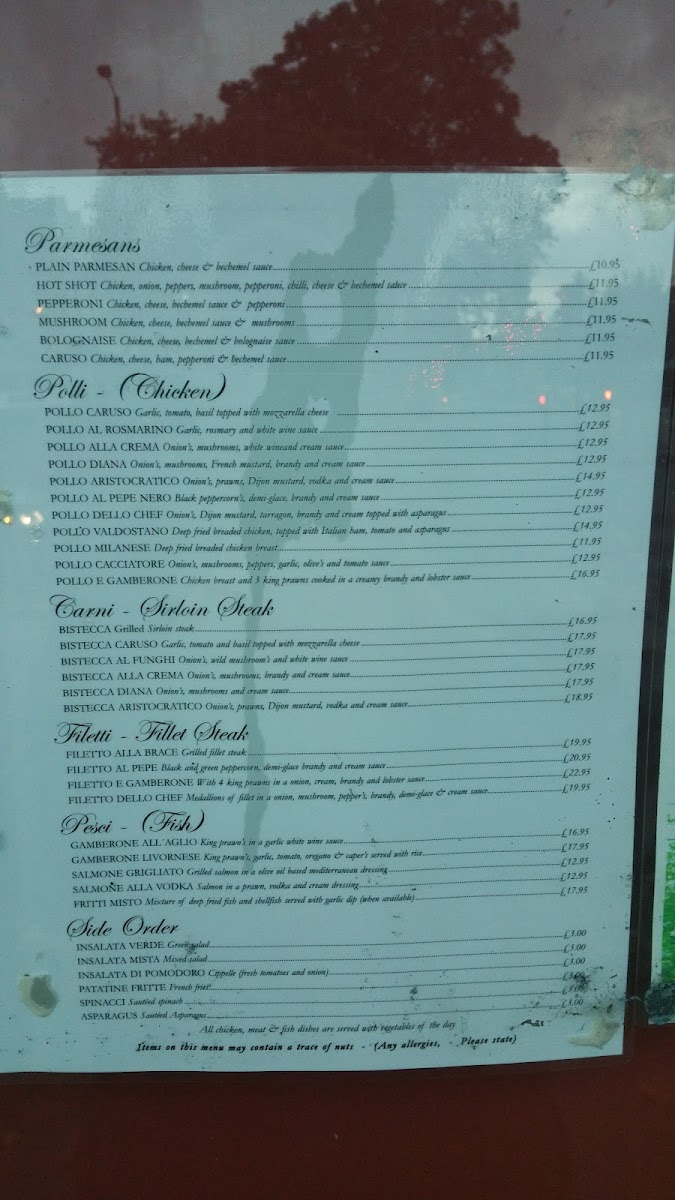 Parmesans
PLAIN PARMESAN Chicken, cheese & bechemel sauce £10.95
HOT SHOT Chicken, onion, peppers, mushroom, pepperoni, chilli, cheese & bechemel sauce £11.95
PEPPERONI Chicken, cheese, bechemel sauce & pepperoni £11.95
MUSHROOM Chicken, cheese, bechemel sauce & mushrooms £11.95
BOLOGNAISE Chicken, cheese, bechemel & bolognaise sauce £11.95
CARUSO Chicken, cheese, ham, pepperoni & bechemel sauce £11.95
Polli - (Chicken)
POLLO CARUSO Garlic, tomato, basil topped with mozzarella cheese £12.95
POLLO AL ROSMARINO Garlic, rosmary and white wine sauce £12.95
POLLO ALLA CREMA Onion's, mushrooms, white wineand cream sauce £12.95
POLLO DIANA Onion's, mushrooms, French mustard, brandy and cream sauce £12.95
POLLO ARISTOCRATICO Onion's, prawns, Dijon mustard, vodka and cream sauce £14.95
POLLO AL PEPE NERO Black peppercorn's, demi-glace, brandy and cream sauce £12.95
POLLO DELLO CHEF Onion's, Dijon mustard, tarragon, brandy and cream topped with asparagus £12.95
POLLO VALDOSTANO Deep fried breaded chicken, topped with Italian ham, tomato and asparagus £14.95
POLLO MILANESE Deep fried breaded chicken breast £11.95
POLLO CACCIATORE Onion's, mushrooms, peppers, garlic, olive's and tomato sauce £12.95
POLLO E GAMBERONE Chicken breast and 3 king prawns cooked in a creamy brandy and lobster sauce £16.95
Carni - Sirloin Steak
BISTECCA Grilled Sirloin steak £16.95
BISTECCA CARUSO Garlic, tomato and basil topped with mozzarella cheese £17.95
BISTECCA AL FUNGHI Onion's, wild mushroom's and white wine sauce £17.95
BISTECCA ALLA CREMA Onion's, mushrooms, brandy and cream sauce £17.95
BISTECCA DIANA Onion's, mushrooms and cream sauce £17.95
BISTECCA ARISTOCRATICO Onion's, prawns, Dijon mustard, vodka and cream sauce £18.95
Filetti - Fillet Steak
FILETTO ALLA BRACE Grilled fillet steak £19.95
FILETTO AL PEPE Black and green peppercorn, demi-glace brandy and cream sauce £20.95
FILETTO E GAMBERONE With 4 king prawns in a onion, cream, brandy and lobster sauce £22.95
FILETTO DELLO CHEF Medallions of fillet in a onion, mushroom, pepper's, brandy, demi-glace & cream sauce £19.95
Pesci - (Fish)
GAMBERONE ALL'AGLIO King prawn's in a garlic white wine sauce £16.95
GAMBERONE LIVORNESE King prawn's, garlic, tomato, oregano & caper's served with rice £17.95
SALMONE GRIGLIATO Grilled salmon in a olive oil based mediterranean dressing £12.95
SALMONE ALLA VODKA Salmon in a prawn, vodka and cream dressing £12.95
FRITTI MISTO Mixture of deep fried fish and shellfish served with garlic dip (when available) £17.95
Side Order
INSALATA VERDE Green salad £3.00
INSALATA MISTA Mixed salad £3.00
INSALATA DI POMODORO Cippelle (fresh tomatoes and onion) £3.00
PATATINE FRITTE French fries £3.00
SPINACCI Sautéed spinach £3.00
ASPARAGUS Sautéed Asparagus £3.00
All chicken, meat & fish dishes are served with vegetables of the day
Items on this menu may contain a trace of nuts - (Any allergies, - Please state)